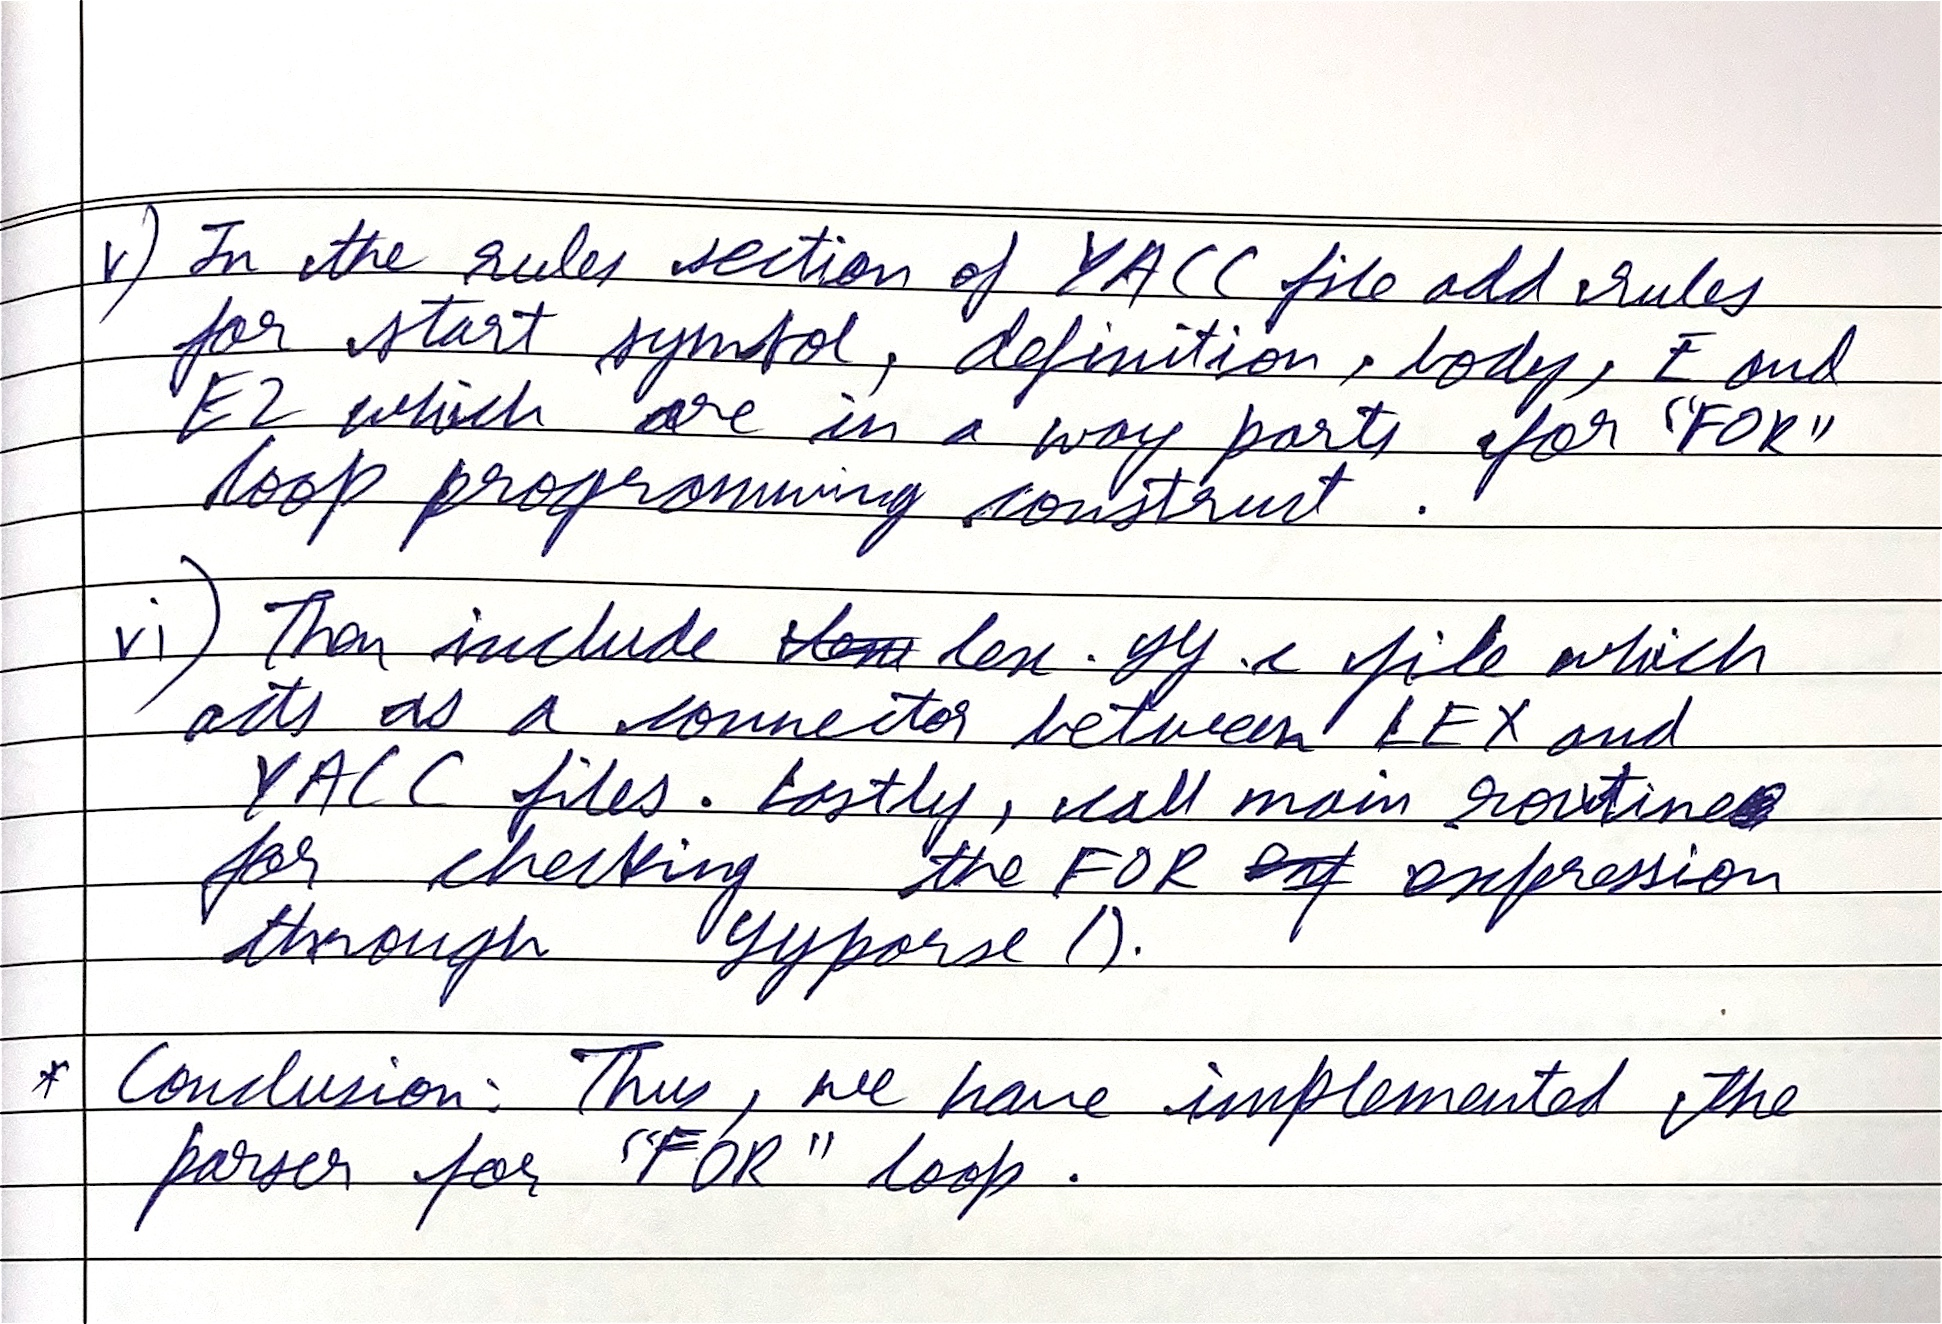 v) In the rules section of YACC file add rules
for start symbol, definition, body, E and
E2 which are in a way parts for "FOR"
loop programming construct.
vi) Then include lex.yy.c file which
acts as a connector between LEX and
YACC files. Lastly, call main routine
for checking the FOR expression
through yyparse().
* Conclusion: Thus, we have implemented the
parser for "FOR" loop.